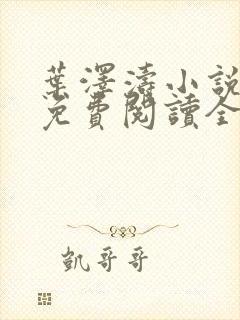 葉澤濤小說
免費閱讀全
凱哥哥